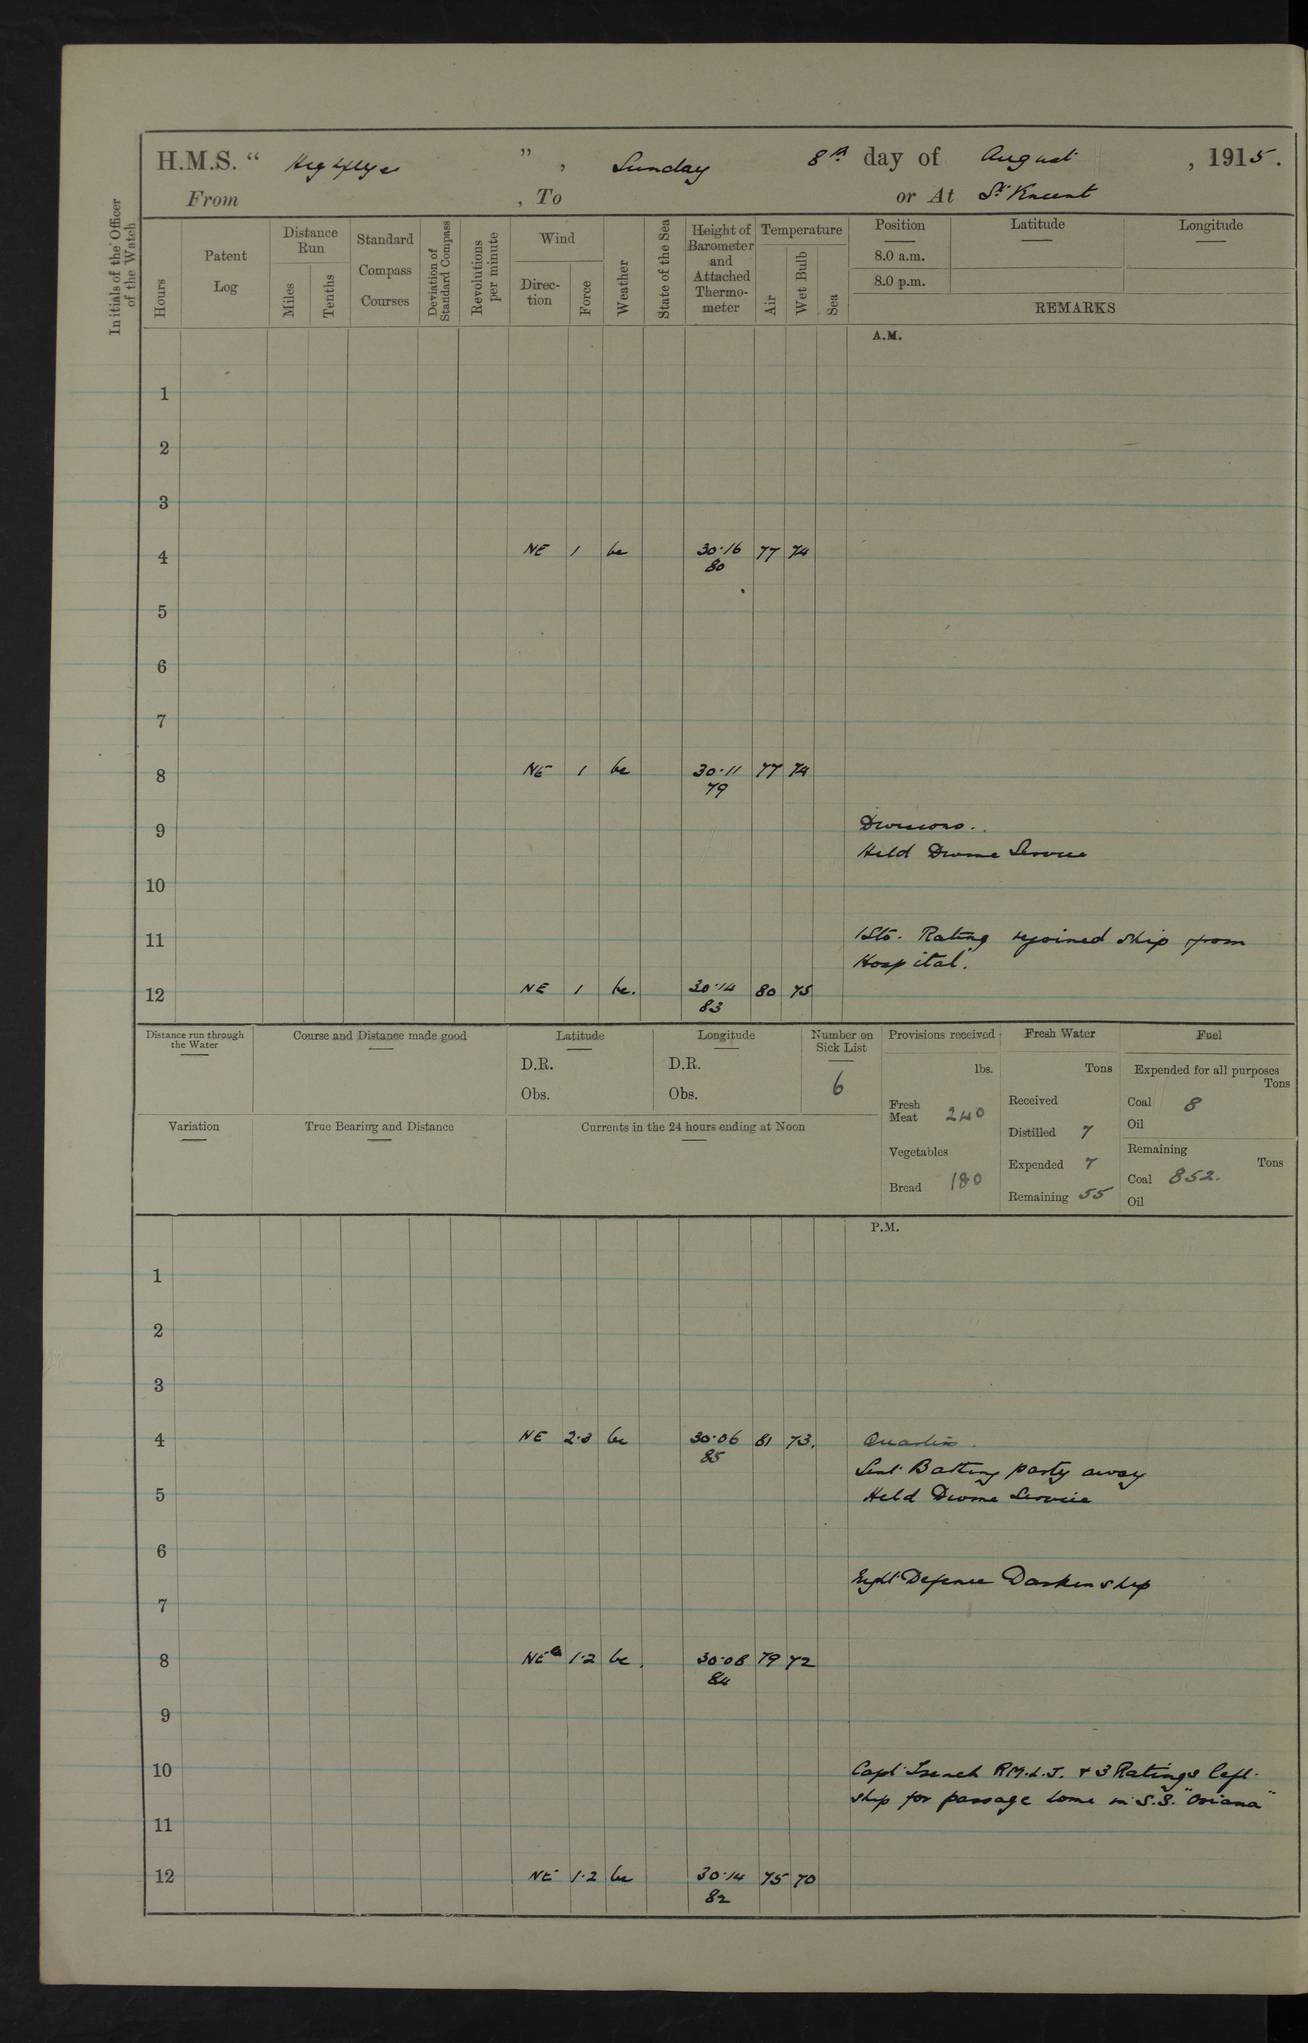 H.M.S. “ Highflyer ” , Sunday 8th day of August , 1915.
From , To or At St Vincent
Initials of the Officer of the Watch
Hours
Patent Log
Distance Run
Miles
Tenths
Standard Compass Courses
Deviation of Standard Compass
Revolutions per minute
Wind
Direction
Force
Weather
State of the Sea
Height of Barometer and Attached Thermometer
Temperature
Air
Wet Bulb
Sea
Position Latitude Longitude
8.0 a.m.
8.0 p.m.
REMARKS
A.M.
1
2
3
4 NE 1 bc 30.16 77 74
80
5
6
7
8 NE 1 bc 30.11 77 74
79
9 Divisions.
Held Divine Service
10
11 1 Sto. Rating rejoined ship from
Hospital.
12 NE 1 bc. 30.14 80 75
83
Distance run through the Water
Course and Distance made good
Latitude
D.R.
Obs.
Longitude
D.R.
Obs.
Number on Sick List
6
Provisions received
lbs.
Fresh Meat 240
Vegetables
Bread 180
Fresh Water
Tons
Received
Distilled 7
Expended 7
Remaining 55
Fuel
Expended for all purposes
Tons
Coal 8
Oil
Remaining
Tons
Coal 852.
Oil
Variation
True Bearing and Distance
Currents in the 24 hours ending at Noon
P.M.
1
2
3
4 NE 2.3 bc 30.06 81 73. Quarters.
85
Sent Bathing party away
5 Held Divine Service
6
Night Defence Darken ship
7
8 NE 1.2 bc. 30.08 79 72
84
9
10 Capt French R.M.L.I. & 3 Ratings left
ship for passage home in S.S. "Oriana"
11
12 NE 1.2 bc 30.14 75 70
82